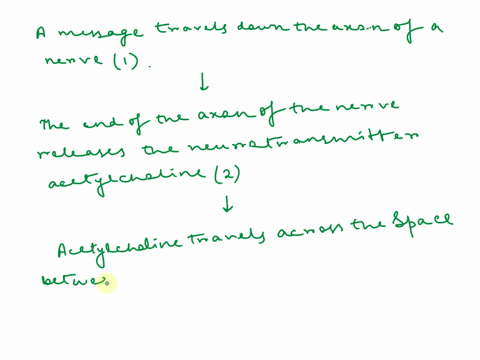 A message travels down the axon of a
nerve (1).
↓
The end of the axon of the nerve
releases the neurotransmitter
acetylcholine (2)
↓
Acetylcholine travels across the space
betwe